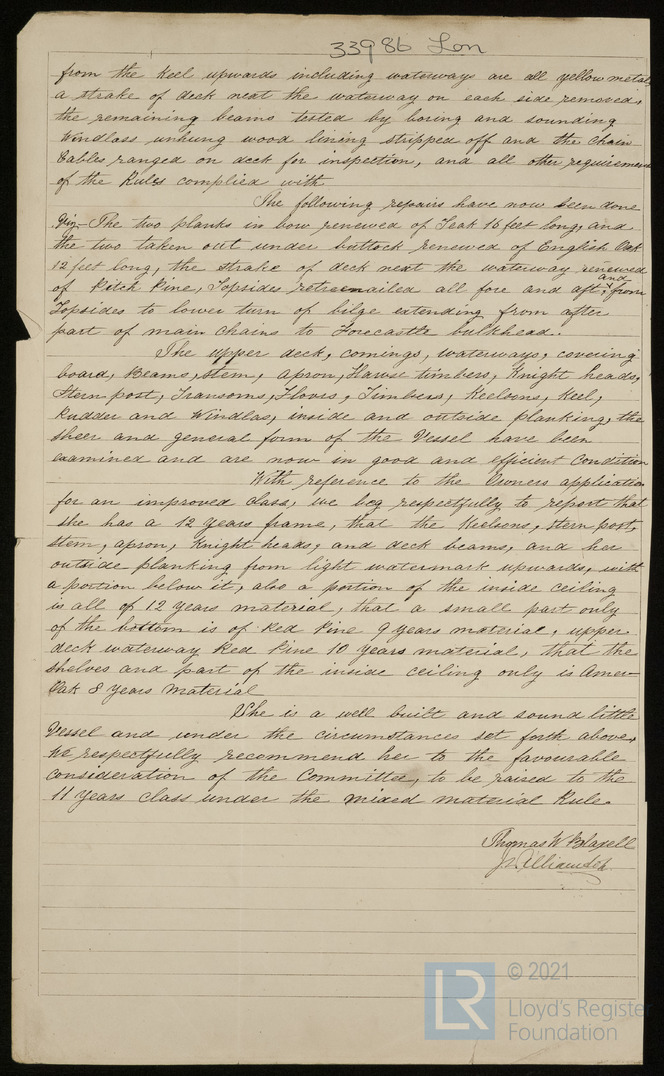 33986 Lon
from the keel upwards including waterway are all yellow metal,
a strake of deck next the waterway on each side removed,
the remaining beams tested by boring and sounding
Windlass unhung wood lining stripped off and the Chain
Cables ranged on deck for inspection, and all other requiremen
of the Rules complied with
The following repairs have now been done
Viz:- The two planks in bow renewed of Teak 16 feet long, and
the two taken out under buttock renewed of English Oak
12 feet long, the strake of deck next the waterway renewed
of Pitch Pine, Topsides retreenailed all fore and aft, and from
Topsides to lower turn of bilge extending from after
part of main chains to Forecastle bulkhead.
The upper deck, comings, waterways, covering
board, Beams, Stem, apron, Hawse timbers, Knight heads,
Stern post, Transoms, Floors, Timbers, Keelsons, Keel,
Rudder and Windlas, inside and outside planking, the
sheer and general form of the Vessel have been
examined and are now in good and efficient Condition
With reference to the Owners application
for an improved class, we beg respectfully to report that
she has a 12 years frame, that the Keelsons, Stern post,
Stem, apron, Knight heads, and deck beams, and her
outside planking from light watermark upwards, with
a portion below it, also a portion of the inside ceiling
is all of 12 years material, that a small part only
of the bottom is of Red Pine 9 years material, upper
deck waterway Red Pine 10 years material, that the
shelves and part of the inside ceiling only is Amer
Oak 8 years material
She is a well built and sound little
Vessel and under the circumstances set forth above,
we respectfully recommend her to the favourable
consideration of the Committee, to be raised to the
11 years class under the mixed material Rule.
Thomas W Blaxell
© 2021
LR
Lloyd's Register
Foundation